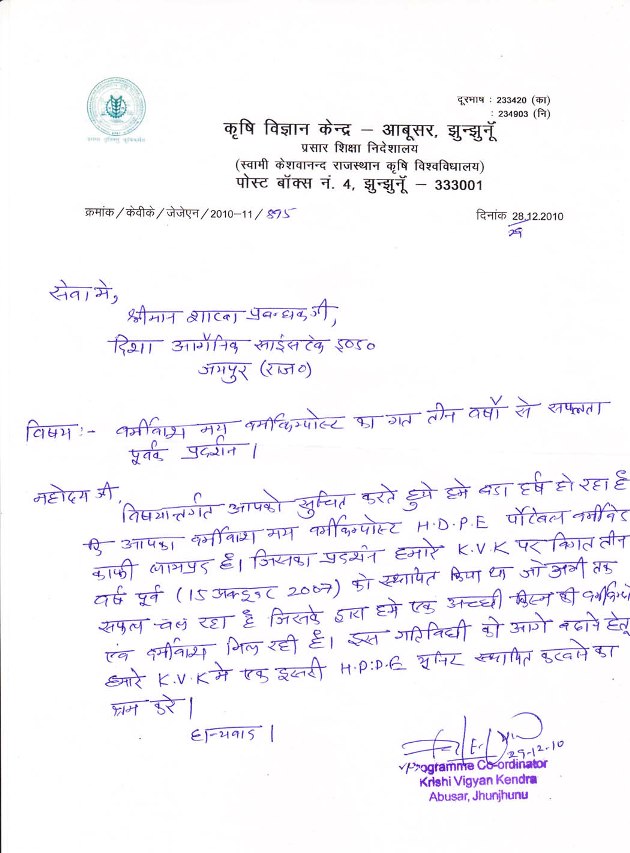 दूरमाष : 233420 (का)
: 234903 (नि)
कृषि विज्ञान केन्द्र – आबूसर, झुन्झुनूॅ
प्रसार शिक्षा निदेशालय
(स्वामी केशवानन्द राजस्थान कृषि विश्वविधालय)
पोस्ट बॉक्स नं. 4, झुन्झुनूॅ – 333001
क्रमांक/केवीके/जेजेएन/2010-11/895
दिनांक 28.12.2010
29
सेवा मे,
श्रीमान शाखा प्रबन्धक जी,
दिशा आर्गेनिक साइंसटेक इ०ड०
जयपुर (राज०)
विषय :- वर्मीवाश मय वर्मीकम्पोस्ट का गत तीन वर्षो से सफलता
पूर्वक प्रदर्शन ।
महोदय जी,
विषयान्तर्गत आपको सुचित करते हुये हमे बडा हर्ष हो रहा है
कि आपका वर्मीवाश मय वर्मीकम्पोस्ट H.D.P.E पोर्टेबल वर्मीबेड
काफी लाभप्रद है। जिसका प्रदर्शन हमारे K.V.K पर विगत तीन
वर्ष पूर्व (15 अक्टुबर 2007) को स्थापित किया था जो अभी तक
सफल चल रहा है जिसके द्वारा हमे एक अच्छी किस्म की वर्मीकम्पो
एवं वर्मीवाश मिल रही है। इस गतिविधी को आगे बढाने हेतू
हमारे K.V.K मे एक दुसरी H.D.P.E युनिट स्थापित करवाने का
श्रम करे।
धन्यवाद ।
29-12-10
Programme Co-ordinator
Krishi Vigyan Kendra
Abusar, Jhunjhunu